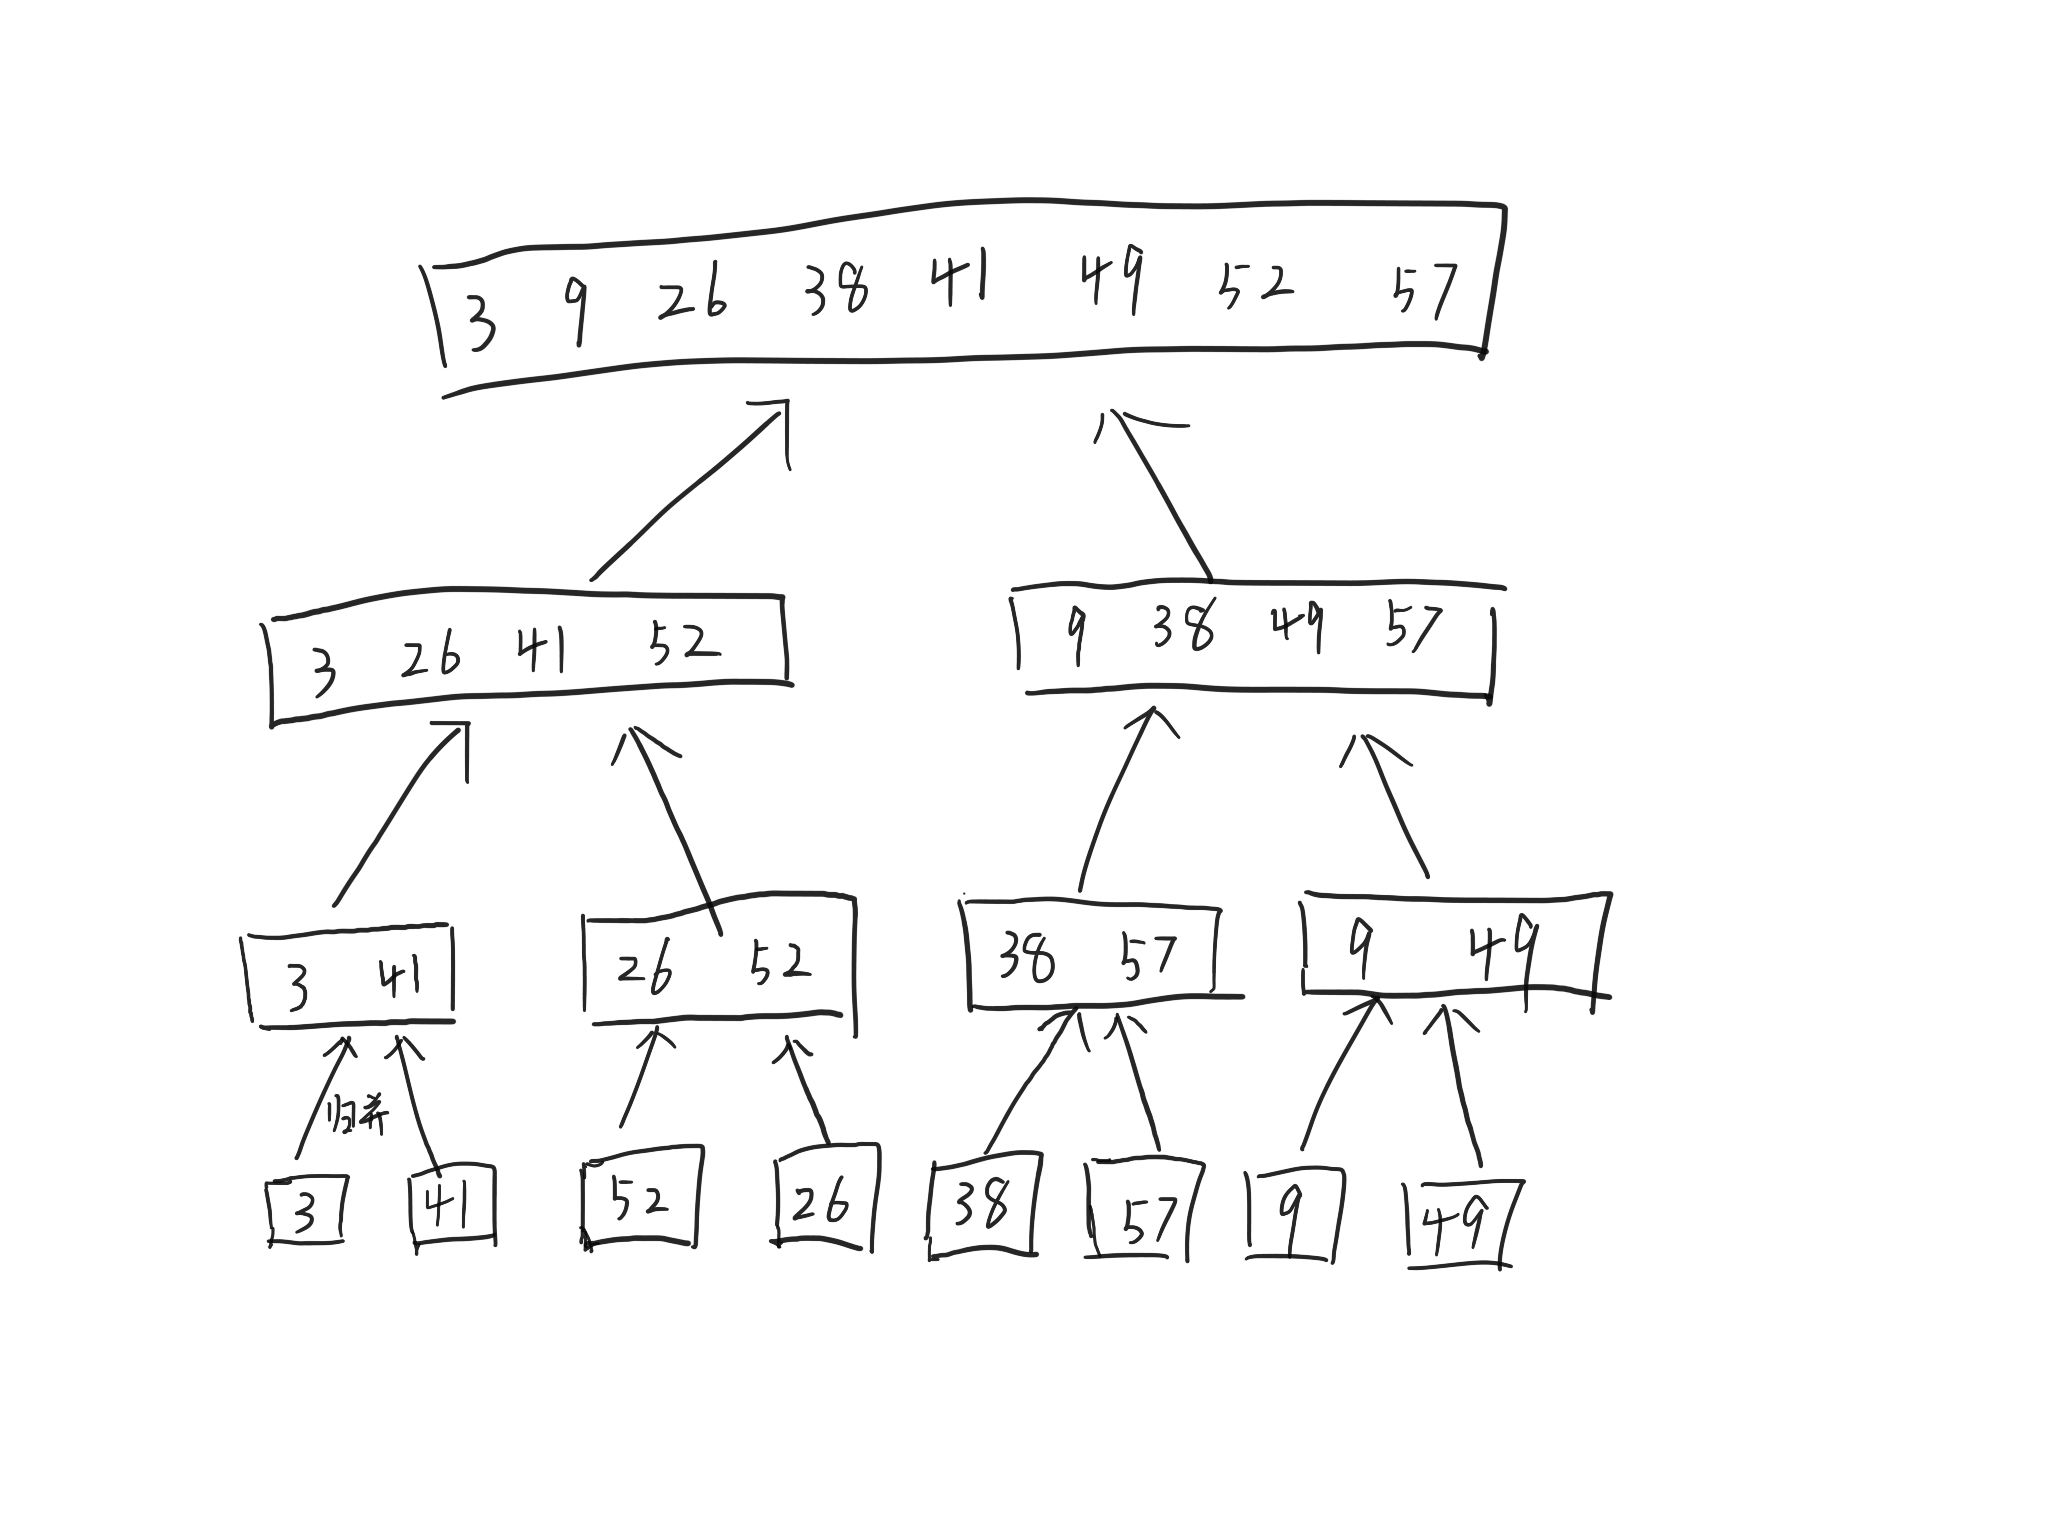 3 9 26 38 41 49 52 57
3 26 41 52 9 38 49 57
3 41 26 52 38 57 9 49
归并
3 41 52 26 38 57 9 49